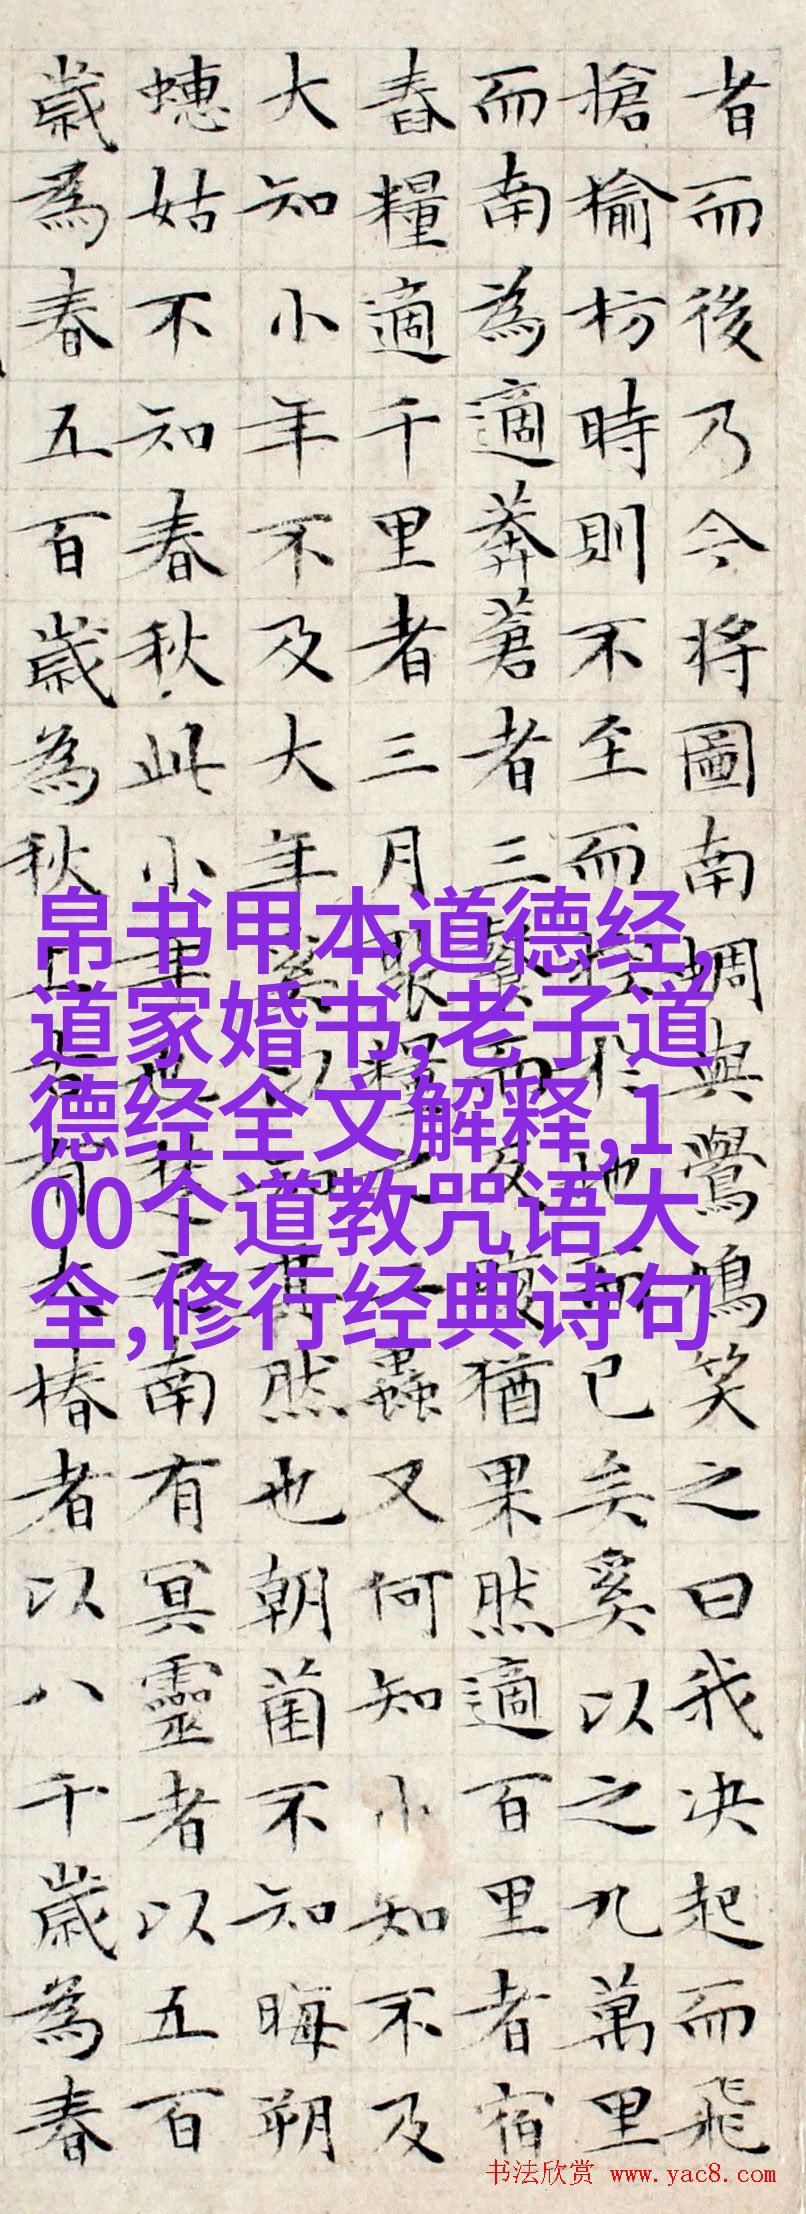 者而後乃今将圖南蜩與鷽鳩笑之曰我决起而飛
搶榆枋時則不至而控於地而已矣奚以之九萬里
而南為適莽蒼者三飡而反腹猶果然適百里者宿
舂糧適千里者三月聚糧之二蟲又何知小知不及
大知小年不及大年奚以知其然也朝菌不知晦朔
蟪姑不知春秋此小年也楚之南有冥靈者以五百
歲為春五百歲為秋上古有大椿者以八千歲為春
帛书甲本道德经,
道家婚书,老子道
德经全文解释,1
00个道教咒语大
全,修行经典诗句
书法欣赏 www.yac8.com